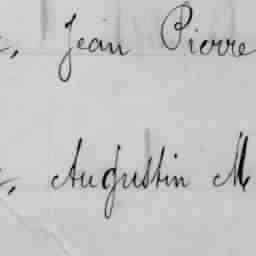 , Jean Pierre
, Augustin M